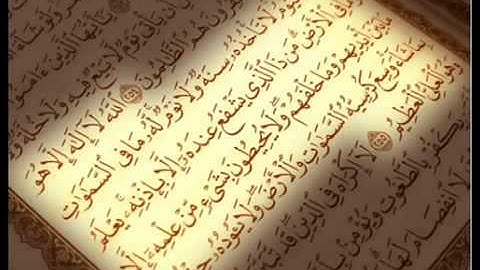 يَوْمٌ لَّا بَيْعٌ فِيهِ وَلَا خُلَّةٌ وَلَا
هُمُ ٱلظَّٰلِمُونَ ٢٥٤ ٱللَّهُ لَآ إِلَٰهَ إِلَّا هُوَ
لَا تَأْخُذُهُۥ سِنَةٌ وَلَا نَوْمٌ لَّهُۥ مَا فِى ٱلسَّمَٰوَٰتِ
فِى ٱلْأَرْضِ مَن ذَا ٱلَّذِى يَشْفَعُ عِندَهُۥٓ إِلَّا بِإِذْنِهِۦ يَعْلَمُ
أَيْدِيهِمْ وَمَا خَلْفَهُمْ وَلَا يُحِيطُونَ بِشَىْءٍ مِّنْ عِلْمِهِۦٓ إِلَّا
شَآءَ وَسِعَ كُرْسِيُّهُ ٱلسَّمَٰوَٰتِ وَٱلْأَرْضَ وَلَا يَـُٔودُهُۥ
وَهُوَ ٱلْعَلِىُّ ٱلْعَظِيمُ ٢٥٥ لَآ إِكْرَاهَ فِى ٱلدِّينِ قَد تَّبَيَّنَ
يَكْفُرْ بِٱلطَّٰغُوتِ وَيُؤْمِنۢ بِٱللَّهِ
لَا ٱنفِصَامَ لَهَا